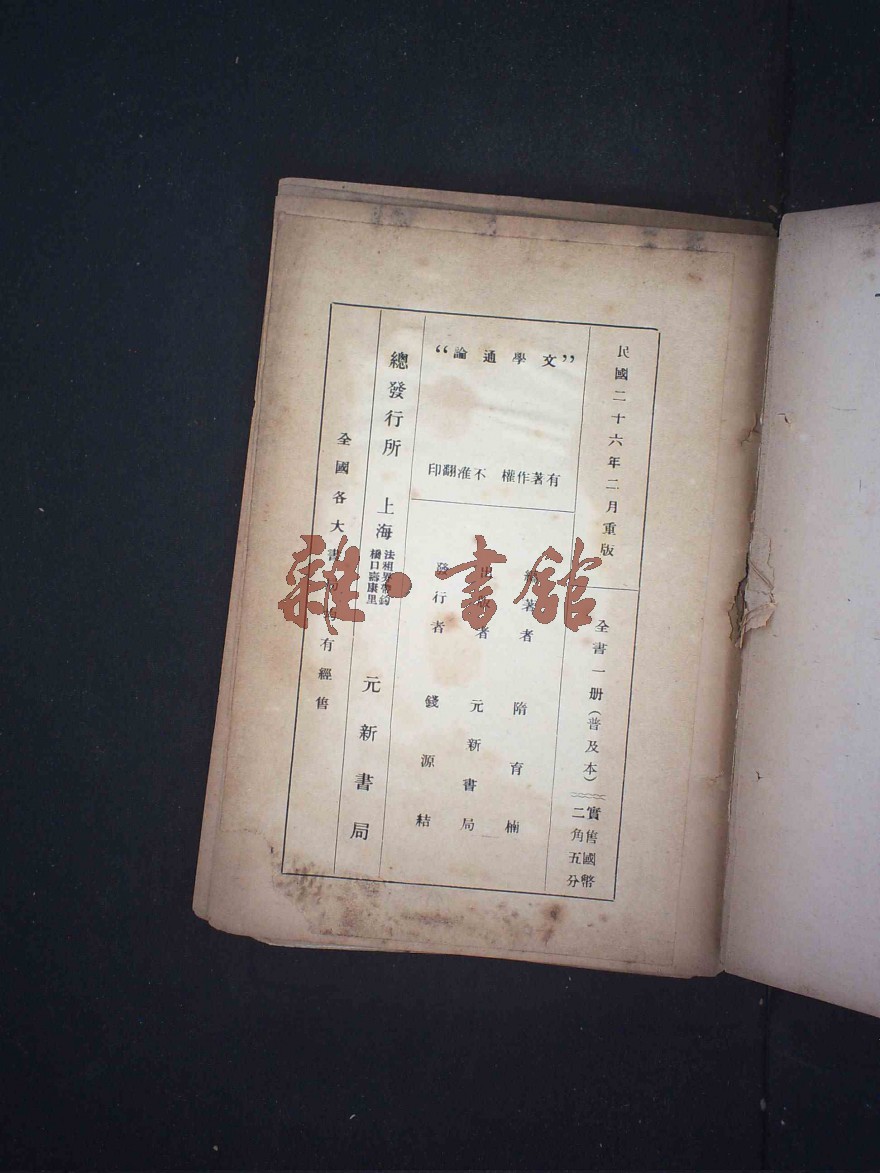 民國二十六年二月重版
全書一册（普及本）
實售國幣
二角五分
“文學通論”
有著作權 不准翻印
編著者 隋育楠
出版者 元新書局
發行者 錢源結
總發行所 上海
法租界帶鈎
橋口壽康里
元新書局
全國各大書局均有經售
雜·書館